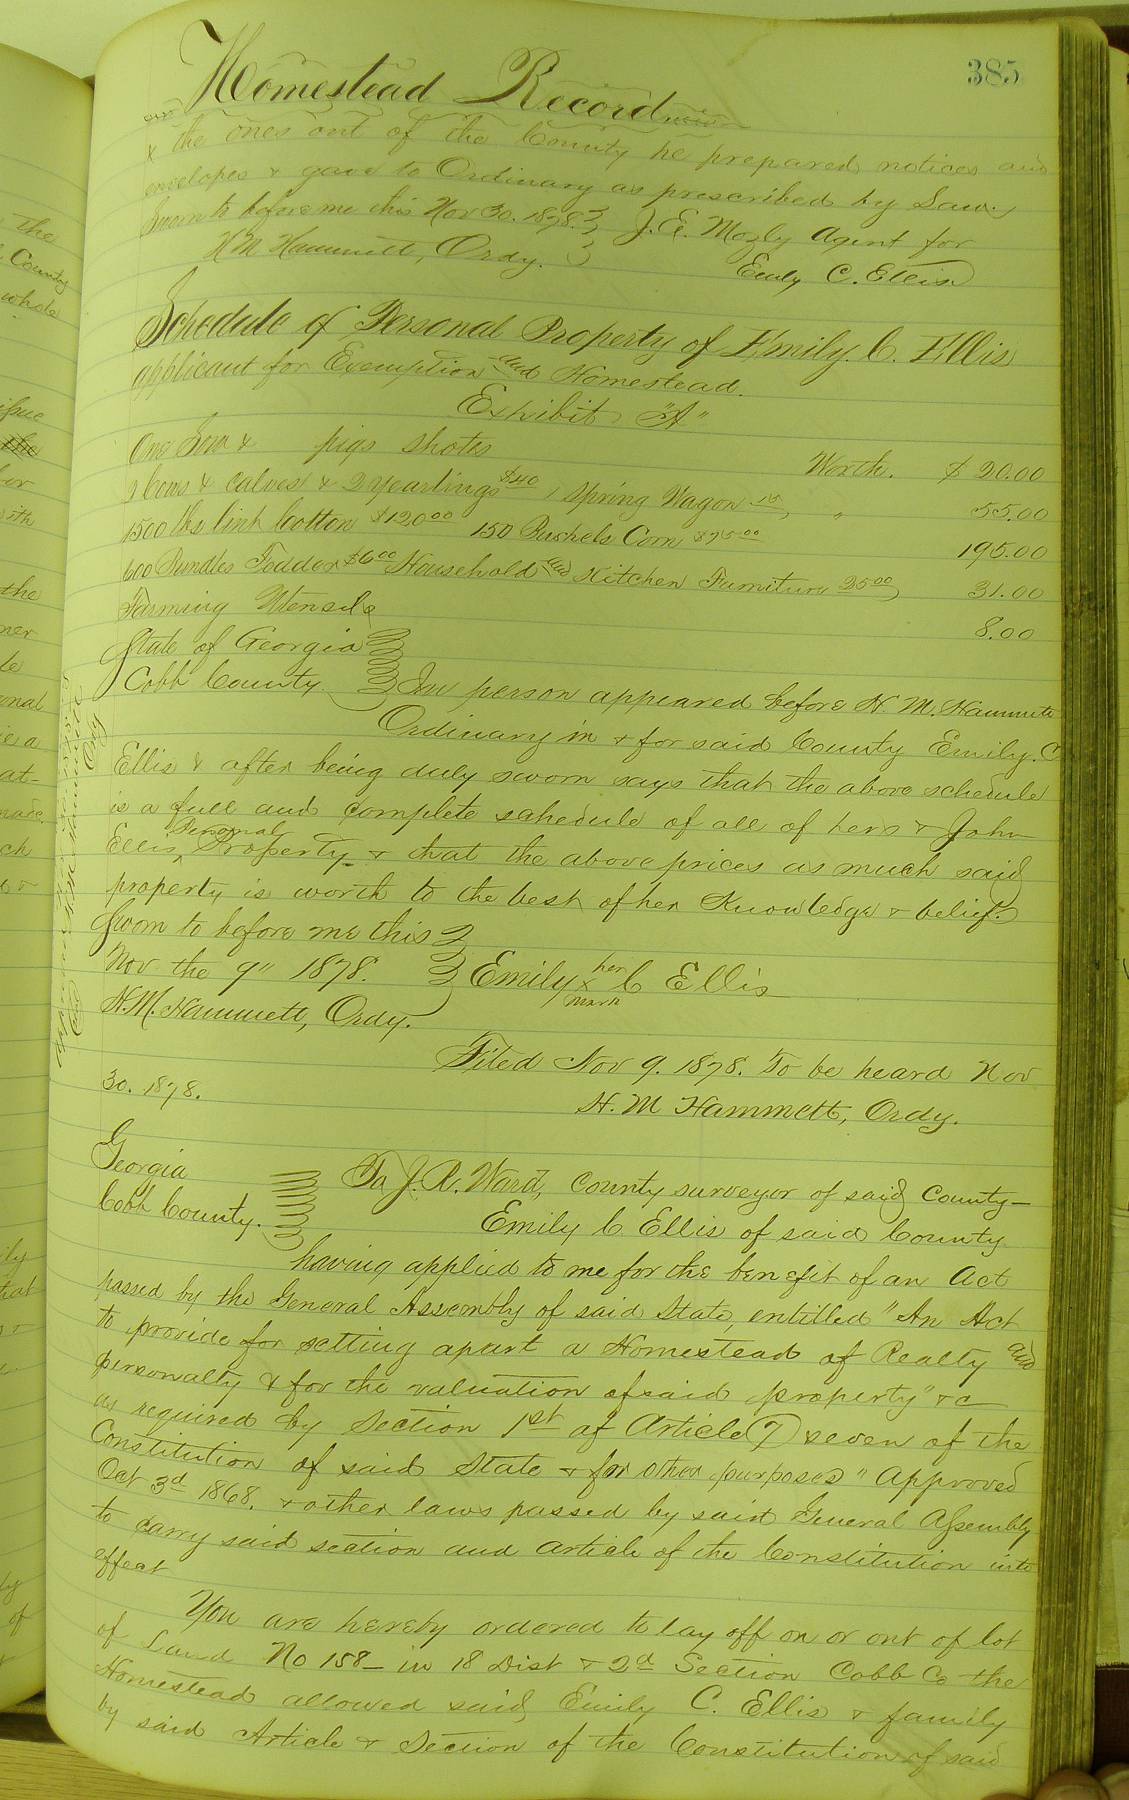 Homestead Record
385
& the ones out of the County he prepared notices and
envelopes & gave to Ordinary as prescribed by Law.
Sworn to before me this Nov 30. 1878. J. E. Mozly Agent for
H M Hammett, Ordy. Emily C. Ellis
Schedule of Personal Property of Emily. C. Ellis
applicant for Exemption and Homestead.
Exhibit "A"
One Sow & pigs shotes Worth. $20.00
2 Cows & calves & 2 yearlings $40, 1 Spring Wagon 15, " 55.00
1500 lbs lint Cotton $120.00 150 Bushels Corn $75.00 195.00
600 Bundles Fodder $6.00 Household and Kitchen Furniture 25.00, 31.00
Farming Utensils 8.00
State of Georgia
Cobb County In person appeared before H. M. Hammett
Ordinary in & for said County Emily. C
Ellis & after being duly sworn says that the above schedule
is a full and complete schedule of all of hers & John
Ellis, Personal Property & that the above prices as much said
property is worth to the best of her Knowledge & belief.
Sworn to before me this
Nov the 9" 1878. Emily her x mark C Ellis
H. M. Hammett, Ordy.
Filed Nov 9. 1878. To be heard Nov
30. 1878.
H. M Hammett, Ordy.
Georgia
Cobb County. To J. R. Ward, County surveyor of said County—
Emily C Ellis of said County
having applied to me for the benefit of an Act
passed by the General Assembly of said State, entitled "An Act
to provide for setting apart a Homestead of Realty and
personalty & for the valuation of said property" &c
as required by Section 1st of Article (7) seven of the
Constitution of said State & for other purposes" Approved
Oct 3d 1868. & other laws passed by said General Assembly
to carry said section and article of the Constitution into
effect
You are hereby ordered to lay off on or out of lot
of Land No 158— in 18 Dist & 2d Section Cobb Co the
Homestead allowed said Emily C. Ellis & family
by said Article & Section of the Constitution of said